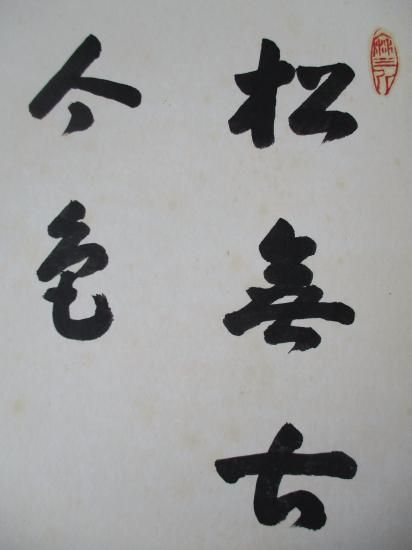 松無古
今色